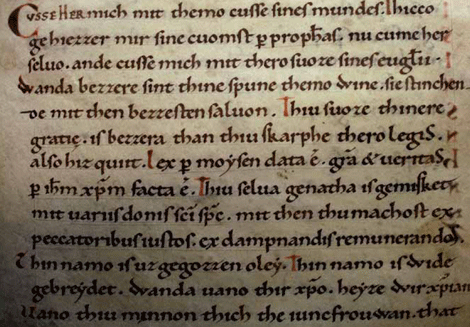 CUSSE HER mich mit themo cusse sines mundes. Thicco
gehiezzer mir sine cuomst p̲ prophās. nu cume her
selvo. ande cusse mich mit thero suoze sines euglīi.
Wanda bezzere sint thine spune themo wine. sie stinchen
oe mit then bezzesten salvon. Thiu suoze thinere
gratię. is bezzera than thiu skarphe thero legis.
also hiz quut. Lex p̲ moysen data ē. grā & veritas
p̲ ihm̄ xp̄m facta ē. Thiu selva genatha is gemisket
mit variis donis scī sp̄c. mit then thu machost ex
peccatoribus iustos. ex dampnandis remunerandos.
Thin namo is uzgegozzen oley. Thin namo is wide
gebreydet. Wanda vano thir xp̄o. heyze wir xp̄iani
Vano thiu minnon thich the iuncfrouwan. that